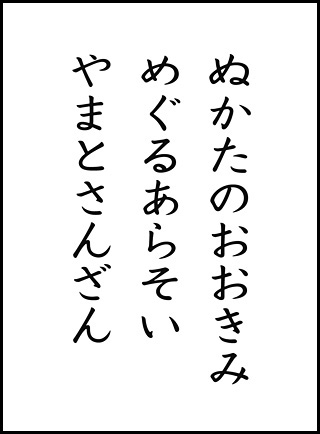 ぬかたのおおきみ
めぐるあらそい
やまとさんざん